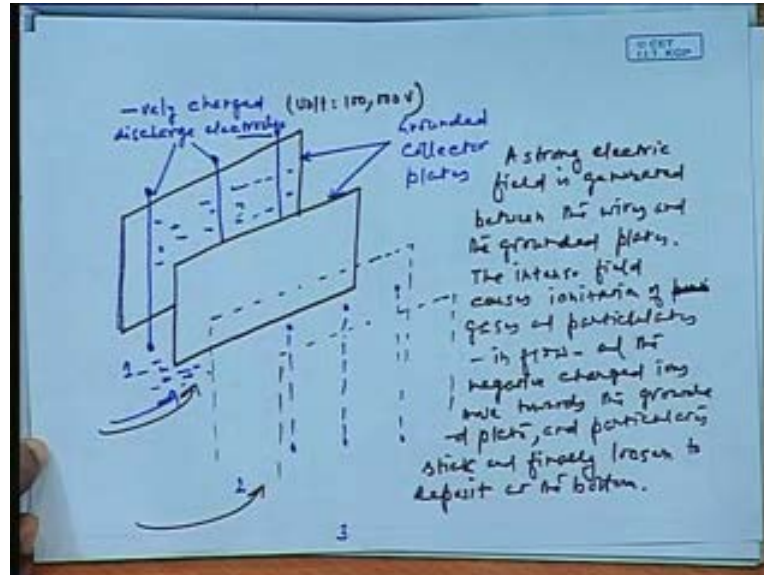 © CET
I.I.T. KGP
-vely charged (Volt: 100,000V)
discharge electrodes
Grounded
Collector
plates
A strong electric
field is generated
between the wires and
the grounded plates.
The intense field
causes ionisation of
gases and particulates
- in flow - and the
negative charged ions
move towards the grounde
-d plate, and particulates
stick and finally loosen to
deposit at the bottom.
1
2
3